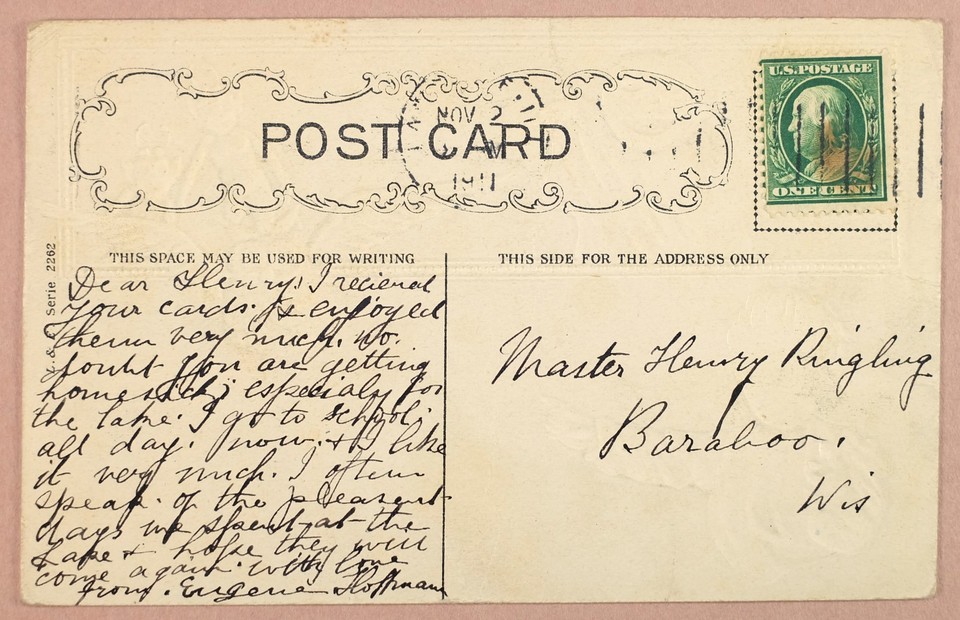 U.S.POSTAGE
ONE CENT
NOV 2
1911
POST CARD
THIS SPACE MAY BE USED FOR WRITING
THIS SIDE FOR THE ADDRESS ONLY
Serie 2262
Dear Henry: I recieved
your cards. & enjoyed
them very much. no.
doubt you are getting
homesick; especialy for
the lake. I go to school.
all day. now. & I like
it very much. I often
speak. of the pleasent
days we spent at the
Lake & hope they will
come again. with love
from. Eugene Hoffmann
Master Henry Ringling
Baraboo.
Wis